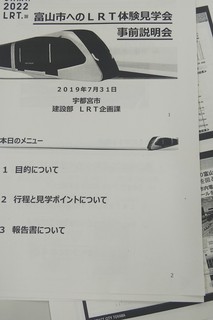 2022
LRT.
富山市へのＬＲＴ体験見学会
事前説明会
２０１９年７月３１日
宇都宮市
建設部　ＬＲＴ企画課
本日のメニュー
１　目的について
２　行程と見学ポイントについて
３　報告書について
2